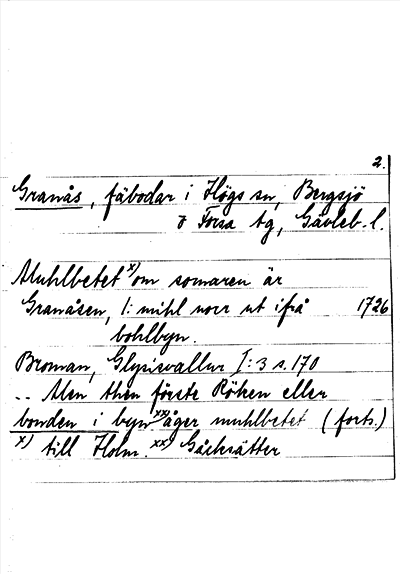 2.
Granås, fäbodar i Högs sn, Bergsjö
o Forsa tg, Gävleb. l.
Muhlbetet x) om somaren är
Granåsen, 1: mihl norr ut ifrå 1726
bohlbyn.
Broman, Glysisvallur I: 3 s. 170
.. Men then förste Röken eller
bonden i byn xx) äger muhlbetet (forts.)
x) till Holm. xx) Gåcksätter